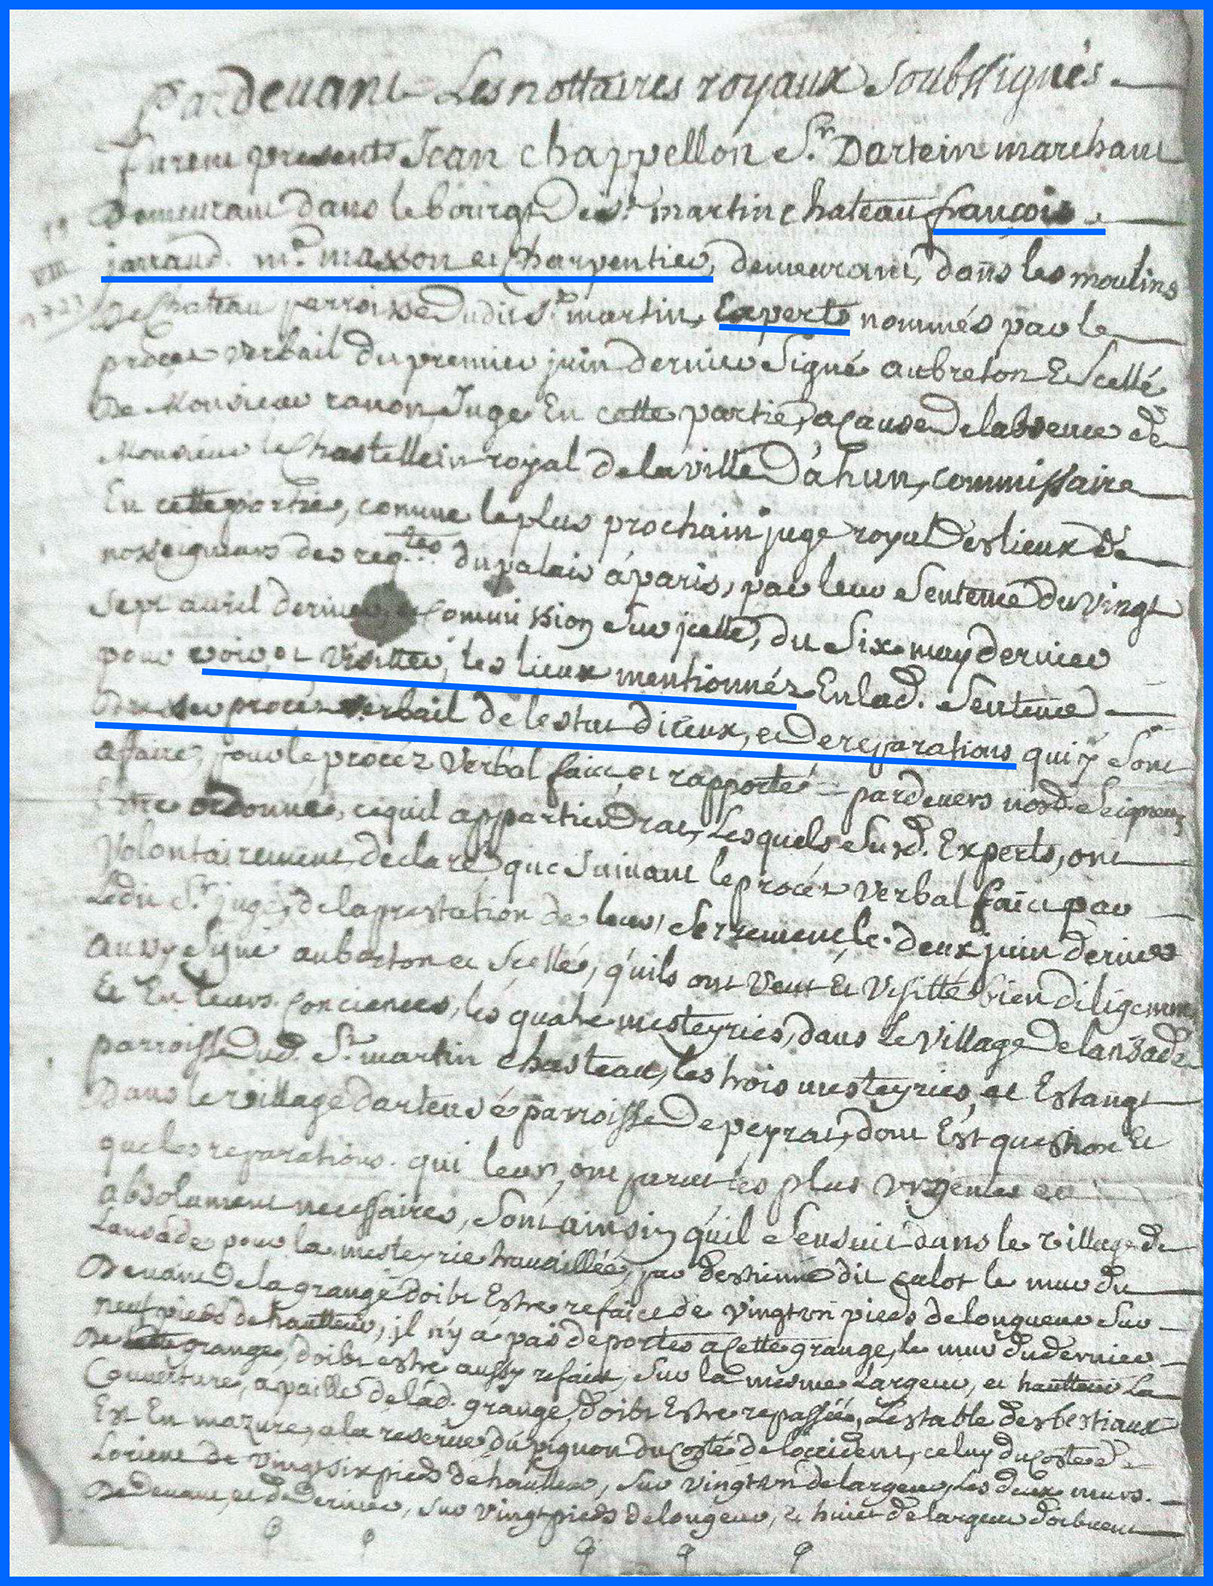 Pardevant Les nottaires royaux Soubssignés
furent presents Jean chappellon Sr. Dartein marchant
Demeurant dans le bourgt De st. martin chateau françois
jarraud. mre. masson et Charpentier, demeurant, dans les moulins
De Chateau perroisse Dudit St. martin, Experts nommés par le
procès verbail du premier juin dernier Signé aubreton Et Scellé
De Monsieur ranon, Juge En cette partie, a cause De labsence de
Monsieur le Chastellein royal de la ville D'ahun, commissaire
En cette partie, comme le plus prochain juge royal Des lieux de
nosseigneurs des reqtes. du palais à paris, par leur Sentence du vingt
Sept avril dernier, et Commission Sur jcelle, du Six may dernier
pour voir, et visitter, les lieux mentionnés En lad. Sentence
Dresser procès verbail de lestat diceux, et De reparations qui y Sont
affaire, pour le procez verbal faict et rapporté pardevers nosd. Seigneurs
Estre ordonné, ce quil appartiendrat, Lesquels Susd. Experts, ont
Volontairement declaré que Suivant le procés verbal faict par
Ledit Sr. juge, de la prestation de leur Serrement, le deux juin dernier
aussy Signé auberton et Scellé, qu'ils ont Veut Et Visitté bien diligemment
Et En leurs Conciences, les quatre mesteyries, dans Le village De lansade
parroisse dud. St. martin chasteau, les trois mesteyries, et Estangt
Dans le village dartensé parroisse De peyrat, dont Est question Et
que les reparations. qui leur, ont paru les plus urgentes et
absolument necessaires, Sont ainsin qu'il Sensuit dans le village de
Lansade pour la mesteyrie travaillée, par destienne dit calot le mur du
Devant de la grange doibt Estre refaict de vingt un pieds de longueur Sur
neuf pieds de hautteur, jl n'y a pas de portes a Cette grange, le mur du dernier
De grange, doibt estre aussy refaict, Sur la mesme Largeur, et hautteur La
Couverture, a paille de lad. grange, doibt Estre repassée, Lestable des bestiaux
Est En mazure, a la reserve du pignon du Costé de loccident, celuy du Costé de
Lorient de vingt six pieds de hautteur, Sur vingt un de largeur, Les deux murs.
De devant, et de dernier, Sur vingt pieds de longeur, et huict de largeur doibvent